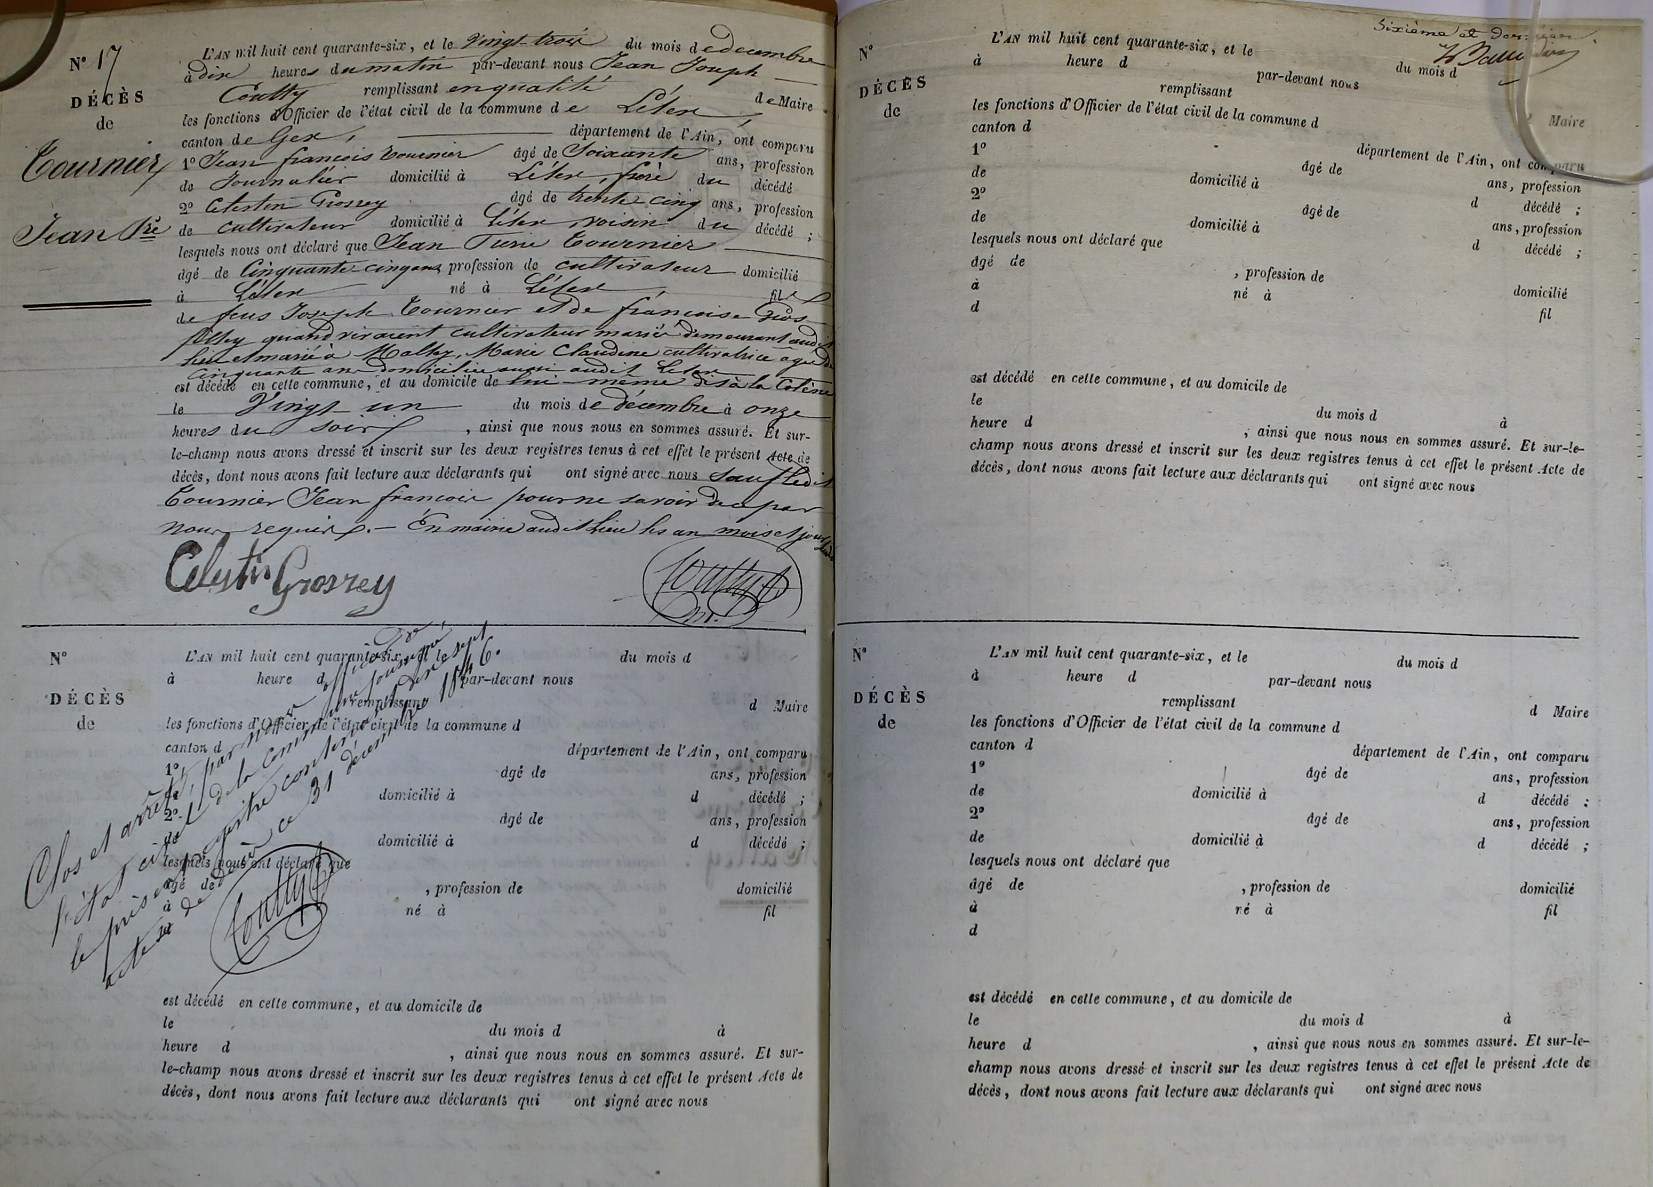 N° 17
DÉCÈS
de
Tournier
Jean Pre
L'AN mil huit cent quarante-six, et le Vingt trois du mois de decembre
à dix heures du matin par-devant nous Jean Joseph
Coutty remplissant en qualité de Maire
les fonctions d'Officier de l'état civil de la commune de Lélex,
canton de Gex, département de l'Ain, ont comparu
1° Jean francois tournier âgé de Soixante ans, profession
de Journalier domicilié à Lélex, frère du décédé
2° Celestin Grosrey âgé de trente cinq ans, profession
de cultivateur domicilié à Lélex, voisin du décédé ;
lesquels nous ont déclaré que Jean Pierre Tournier
âgé de Cinquante cinq ans profession de cultivateur domicilié
à Lélex né à Lélex, fils
de feus Joseph Tournier et de francoise
quand vivaient cultivateur mariés demeurant audit
lieu et marié à Marie Claudine cultivatrice âgée de
Cinquante ans domiciliée aussi audit Lélex
est décédé en cette commune, et au domicile de lui-même dit à la
le Vingt un du mois de décembre à onze
heures du soir, ainsi que nous nous en sommes assuré. Et sur-
le-champ nous avons dressé et inscrit sur les deux registres tenus à cet effet le présent Acte de
décès, dont nous avons fait lecture aux déclarants qui ont signé avec nous Sauf ledit
Tournier Jean francois pour ne savoir de ce par
nous requis. — En mairie audit lieu les an mois et jour
Celestin Grosrey
Coutty
N°
DÉCÈS
de
L'AN mil huit cent quarante-six, et le du mois d
à heure d par-devant nous
remplissant d Maire
les fonctions d'Officier de l'état civil de la commune d
canton d département de l'Ain, ont comparu
1° âgé de ans, profession
de domicilié à d décédé ;
2° âgé de ans, profession
de domicilié à d décédé ;
lesquels nous ont déclaré que
âgé de , profession de domicilié
à né à fil
d
Clos et arrêté par nous officier de
l'état civil de la commune
le présent registre contenant dix sept
actes de décès ce 31 décembre 1846.
Coutty
est décédé en cette commune, et au domicile de
le du mois d à
heure d , ainsi que nous nous en sommes assuré. Et sur-
le-champ nous avons dressé et inscrit sur les deux registres tenus à cet effet le présent Acte de
décès, dont nous avons fait lecture aux déclarants qui ont signé avec nous
Sixième et dernier.
N°
DÉCÈS
de
L'AN mil huit cent quarante-six, et le du mois d
à heure d par-devant nous
remplissant Maire
les fonctions d'Officier de l'état civil de la commune d
canton d département de l'Ain, ont comparu
1° âgé de ans, profession
de domicilié à d décédé ;
2° âgé de ans, profession
de domicilié à d décédé ;
lesquels nous ont déclaré que
âgé de , profession de domicilié
à né à fil
d
est décédé en cette commune, et au domicile de
le du mois d à
heure d , ainsi que nous nous en sommes assuré. Et sur-le-
champ nous avons dressé et inscrit sur les deux registres tenus à cet effet le présent Acte de
décès, dont nous avons fait lecture aux déclarants qui ont signé avec nous
N°
DÉCÈS
de
L'AN mil huit cent quarante-six, et le du mois d
à heure d par-devant nous
remplissant d Maire
les fonctions d'Officier de l'état civil de la commune d
canton d département de l'Ain, ont comparu
1° âgé de ans, profession
de domicilié à d décédé ;
2° âgé de ans, profession
de domicilié à d décédé ;
lesquels nous ont déclaré que
âgé de , profession de domicilié
à né à fil
d
est décédé en cette commune, et au domicile de
le du mois d à
heure d , ainsi que nous nous en sommes assuré. Et sur-le-
champ nous avons dressé et inscrit sur les deux registres tenus à cet effet le présent Acte de
décès, dont nous avons fait lecture aux déclarants qui ont signé avec nous